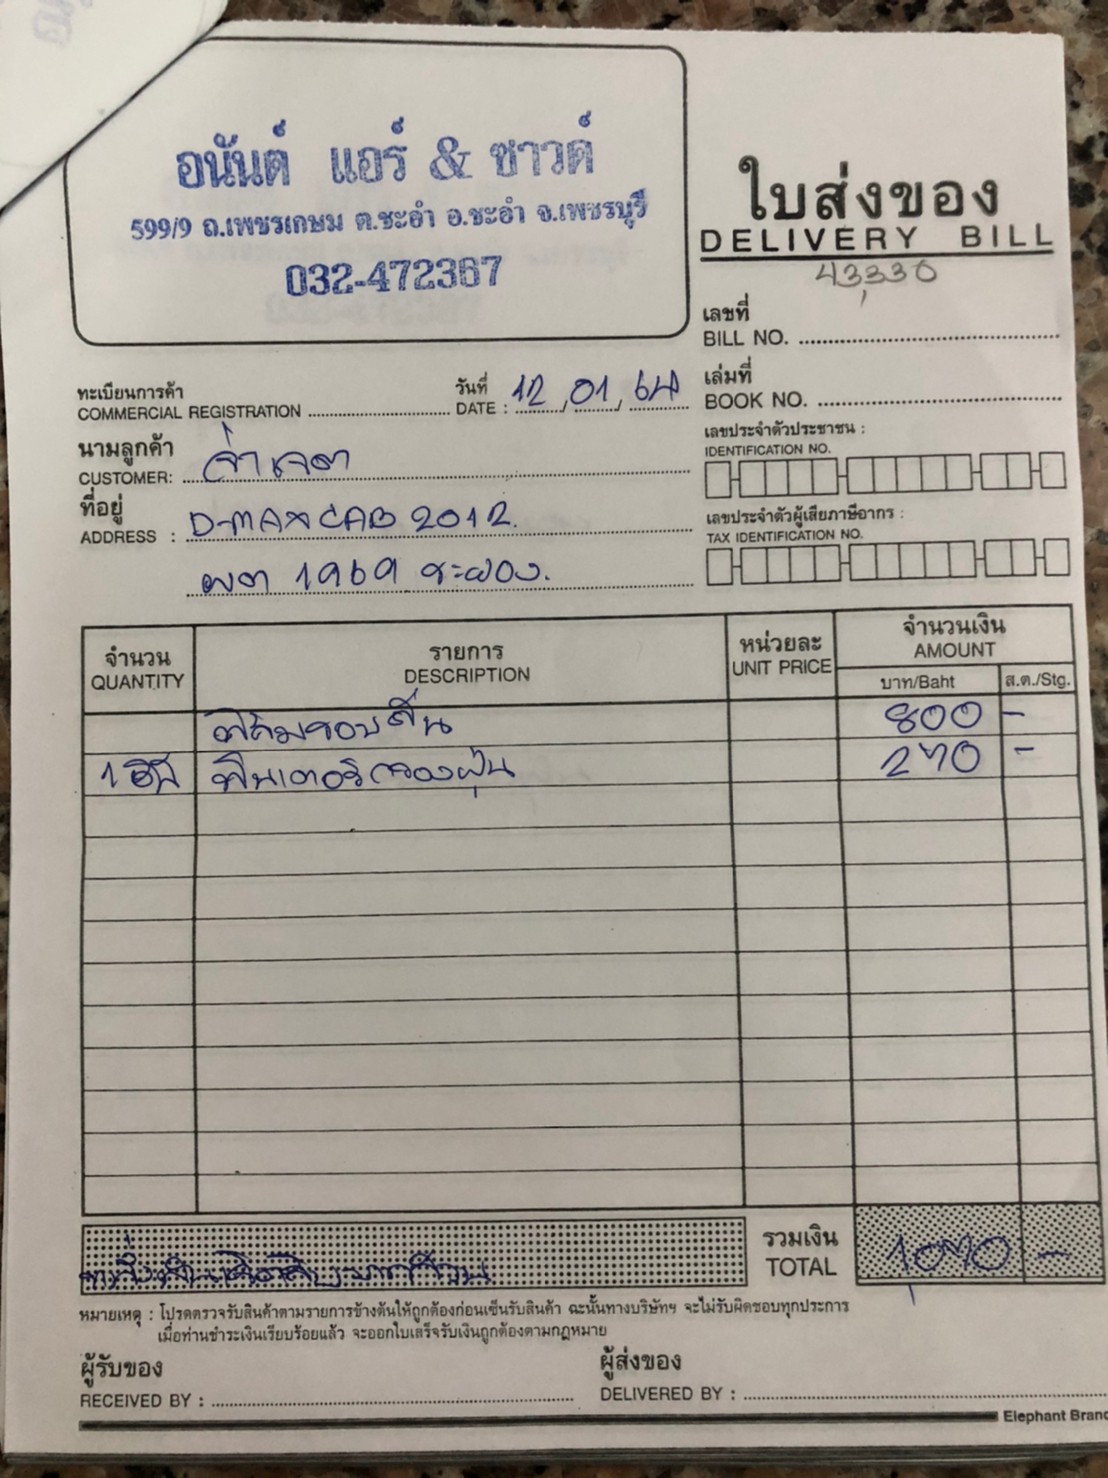 อนันต์ แอร์ & ซาวด์
599/9 ถ.เพชรเกษม ต.ชะอำ อ.ชะอำ จ.เพชรบุรี
032-472367
ใบส่งของ
DELIVERY BILL
43,330
เลขที่
BILL NO.
ทะเบียนการค้า
COMMERCIAL REGISTRATION
วันที่
DATE : 12,01,64
เล่มที่
BOOK NO.
นามลูกค้า
CUSTOMER: จ่าเจต
เลขประจำตัวประชาชน :
IDENTIFICATION NO.
ที่อยู่
ADDRESS : D-MAX CAB 2012.
เลขประจำตัวผู้เสียภาษีอากร :
TAX IDENTIFICATION NO.
ผต 1969 ระยอง.
จำนวน
QUANTITY
รายการ
DESCRIPTION
หน่วยละ
UNIT PRICE
จำนวนเงิน
AMOUNT
บาท/Baht
ส.ต./Stg.
800 -
1 อัน ฟิลเตอร์กรองฝุ่น 270 -
รวมเงิน
TOTAL
1,070 -
หมายเหตุ : โปรดตรวจรับสินค้าตามรายการข้างต้นให้ถูกต้องก่อนเซ็นรับสินค้า ฉะนั้นทางบริษัทฯ จะไม่รับผิดชอบทุกประการ
เมื่อท่านชำระเงินเรียบร้อยแล้ว จะออกใบเสร็จรับเงินถูกต้องตามกฎหมาย
ผู้รับของ
RECEIVED BY :
ผู้ส่งของ
DELIVERED BY :
Elephant Brand